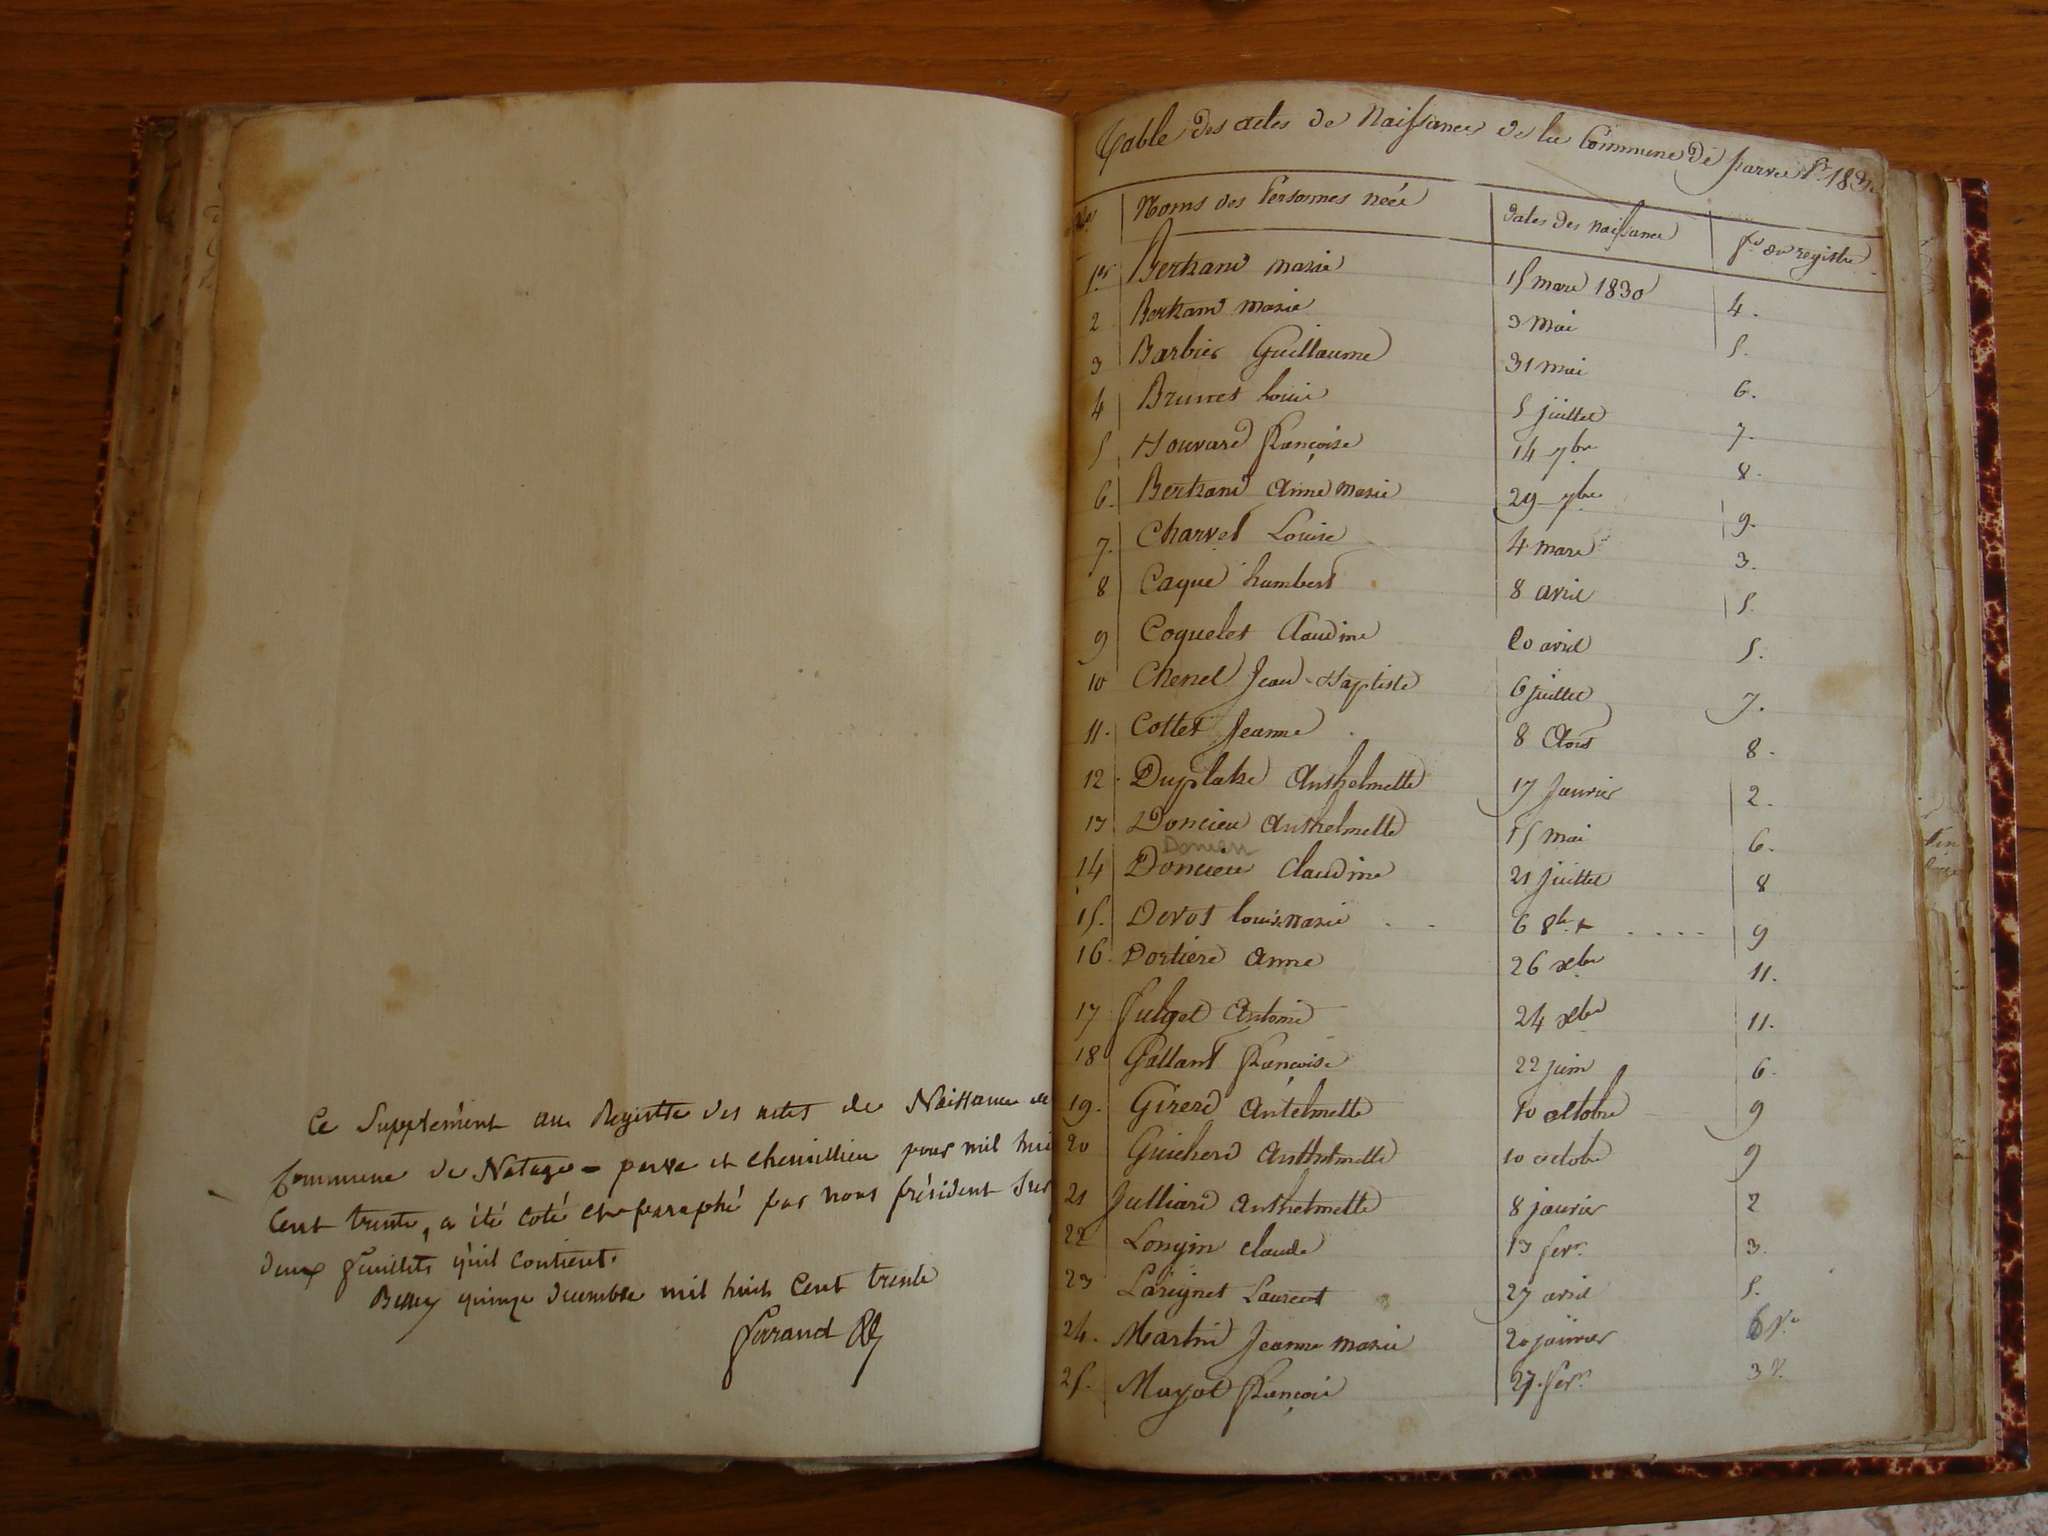 Ce Supplément au Registre des actes de Naissance de
Commune de Natage - parve et chemillieu pour mil hui
Cent trente, a été coté et paraphé par nous président Sur
deux feuillets qu'il contient.
Belley quinze decembre mil huit Cent trente
Ferrand
Table des actes de Naissances de la Commune de parves pr. 1830
Nos Noms des Personnes néés dates des naissances fos du registre
1er Bertrand marie 15 mars 1830 4.
2 Bertrand marie 3 mai 5.
3 Barbier Guillaume 31 mai 6.
4 Brunet louis 5 juillet 7.
5 Bouvard françoise 14 7bre 8.
6. Bertrand anne marie 29 7bre 9.
7. Charvet Louise 4 mars 3.
8 Caque humbert 8 avril 5.
9 Coquelet Claudine 20 avril 5.
10 Chenel Jean-Baptiste 6 juillet 7.
11. Cottet Jeanne 8 Aout 8.
12. Duplatre Anthelmette 17 Janvier 2.
13 Doncieu Anthelmette 15 mai 6.
14 Doncieu Claudine 21 juillet 8
15. Devot louise marie 6 8bre 9
16. Dortiere Anne 26 xbre 11.
17 fulget Antoine 24 xbre 11.
18 Gallant françoise 22 juin 6.
19. Girerd Antelmette 10 octobre 9
20 Guicherd Anthelmette 10 octobre 9
21 Julliard Anthelmette 8 janvier 2
22 Longin claude 13 fevr. 3.
23 Larignet Laurent 27 avril 5.
24. Martin Jeanne marie 20 janvier
25. Mayot françois 27 fevr. 3